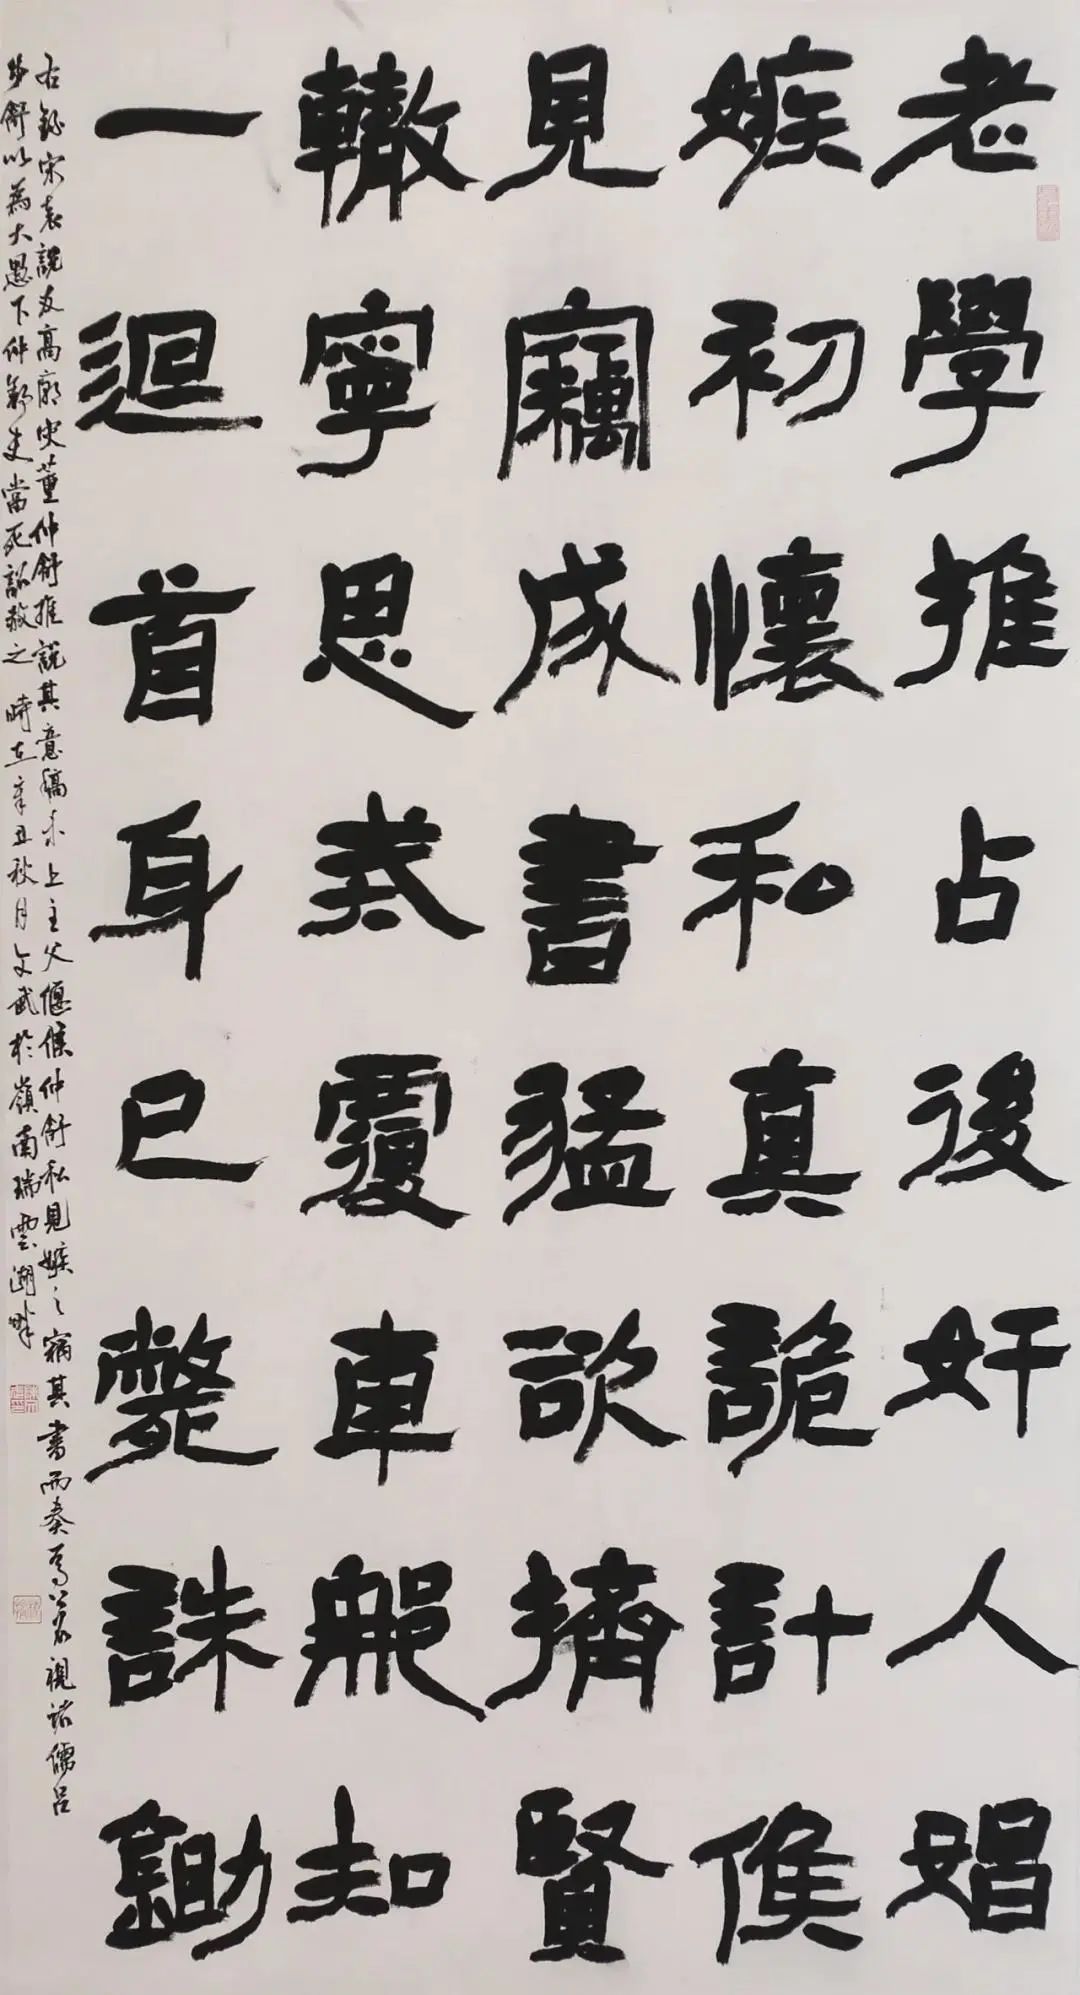 老學推占後奸人娼
嫉初懷和真詭計候
見竊成書猛欲擠賢
轍寧思㦲覆車那知
一迴首身已斃誅鋤
右錄宋袁說友高廟災董仲舒推說其意稿未上主父偃候仲舒私見嫉之竊其書而奏焉召視諸儒呂
步舒以為大愚下仲舒吏當死詔赦之 時在辛丑秋月文武於嶺南瑞雲湖畔